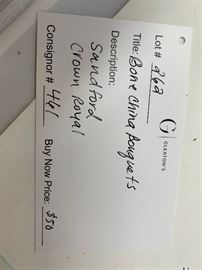 G
GLEATON'S
Lot # 262
Title: Bone China Bouquets
Description:
Sandford
Crown Royal
Consignor # 461
Buy Now Price: $50